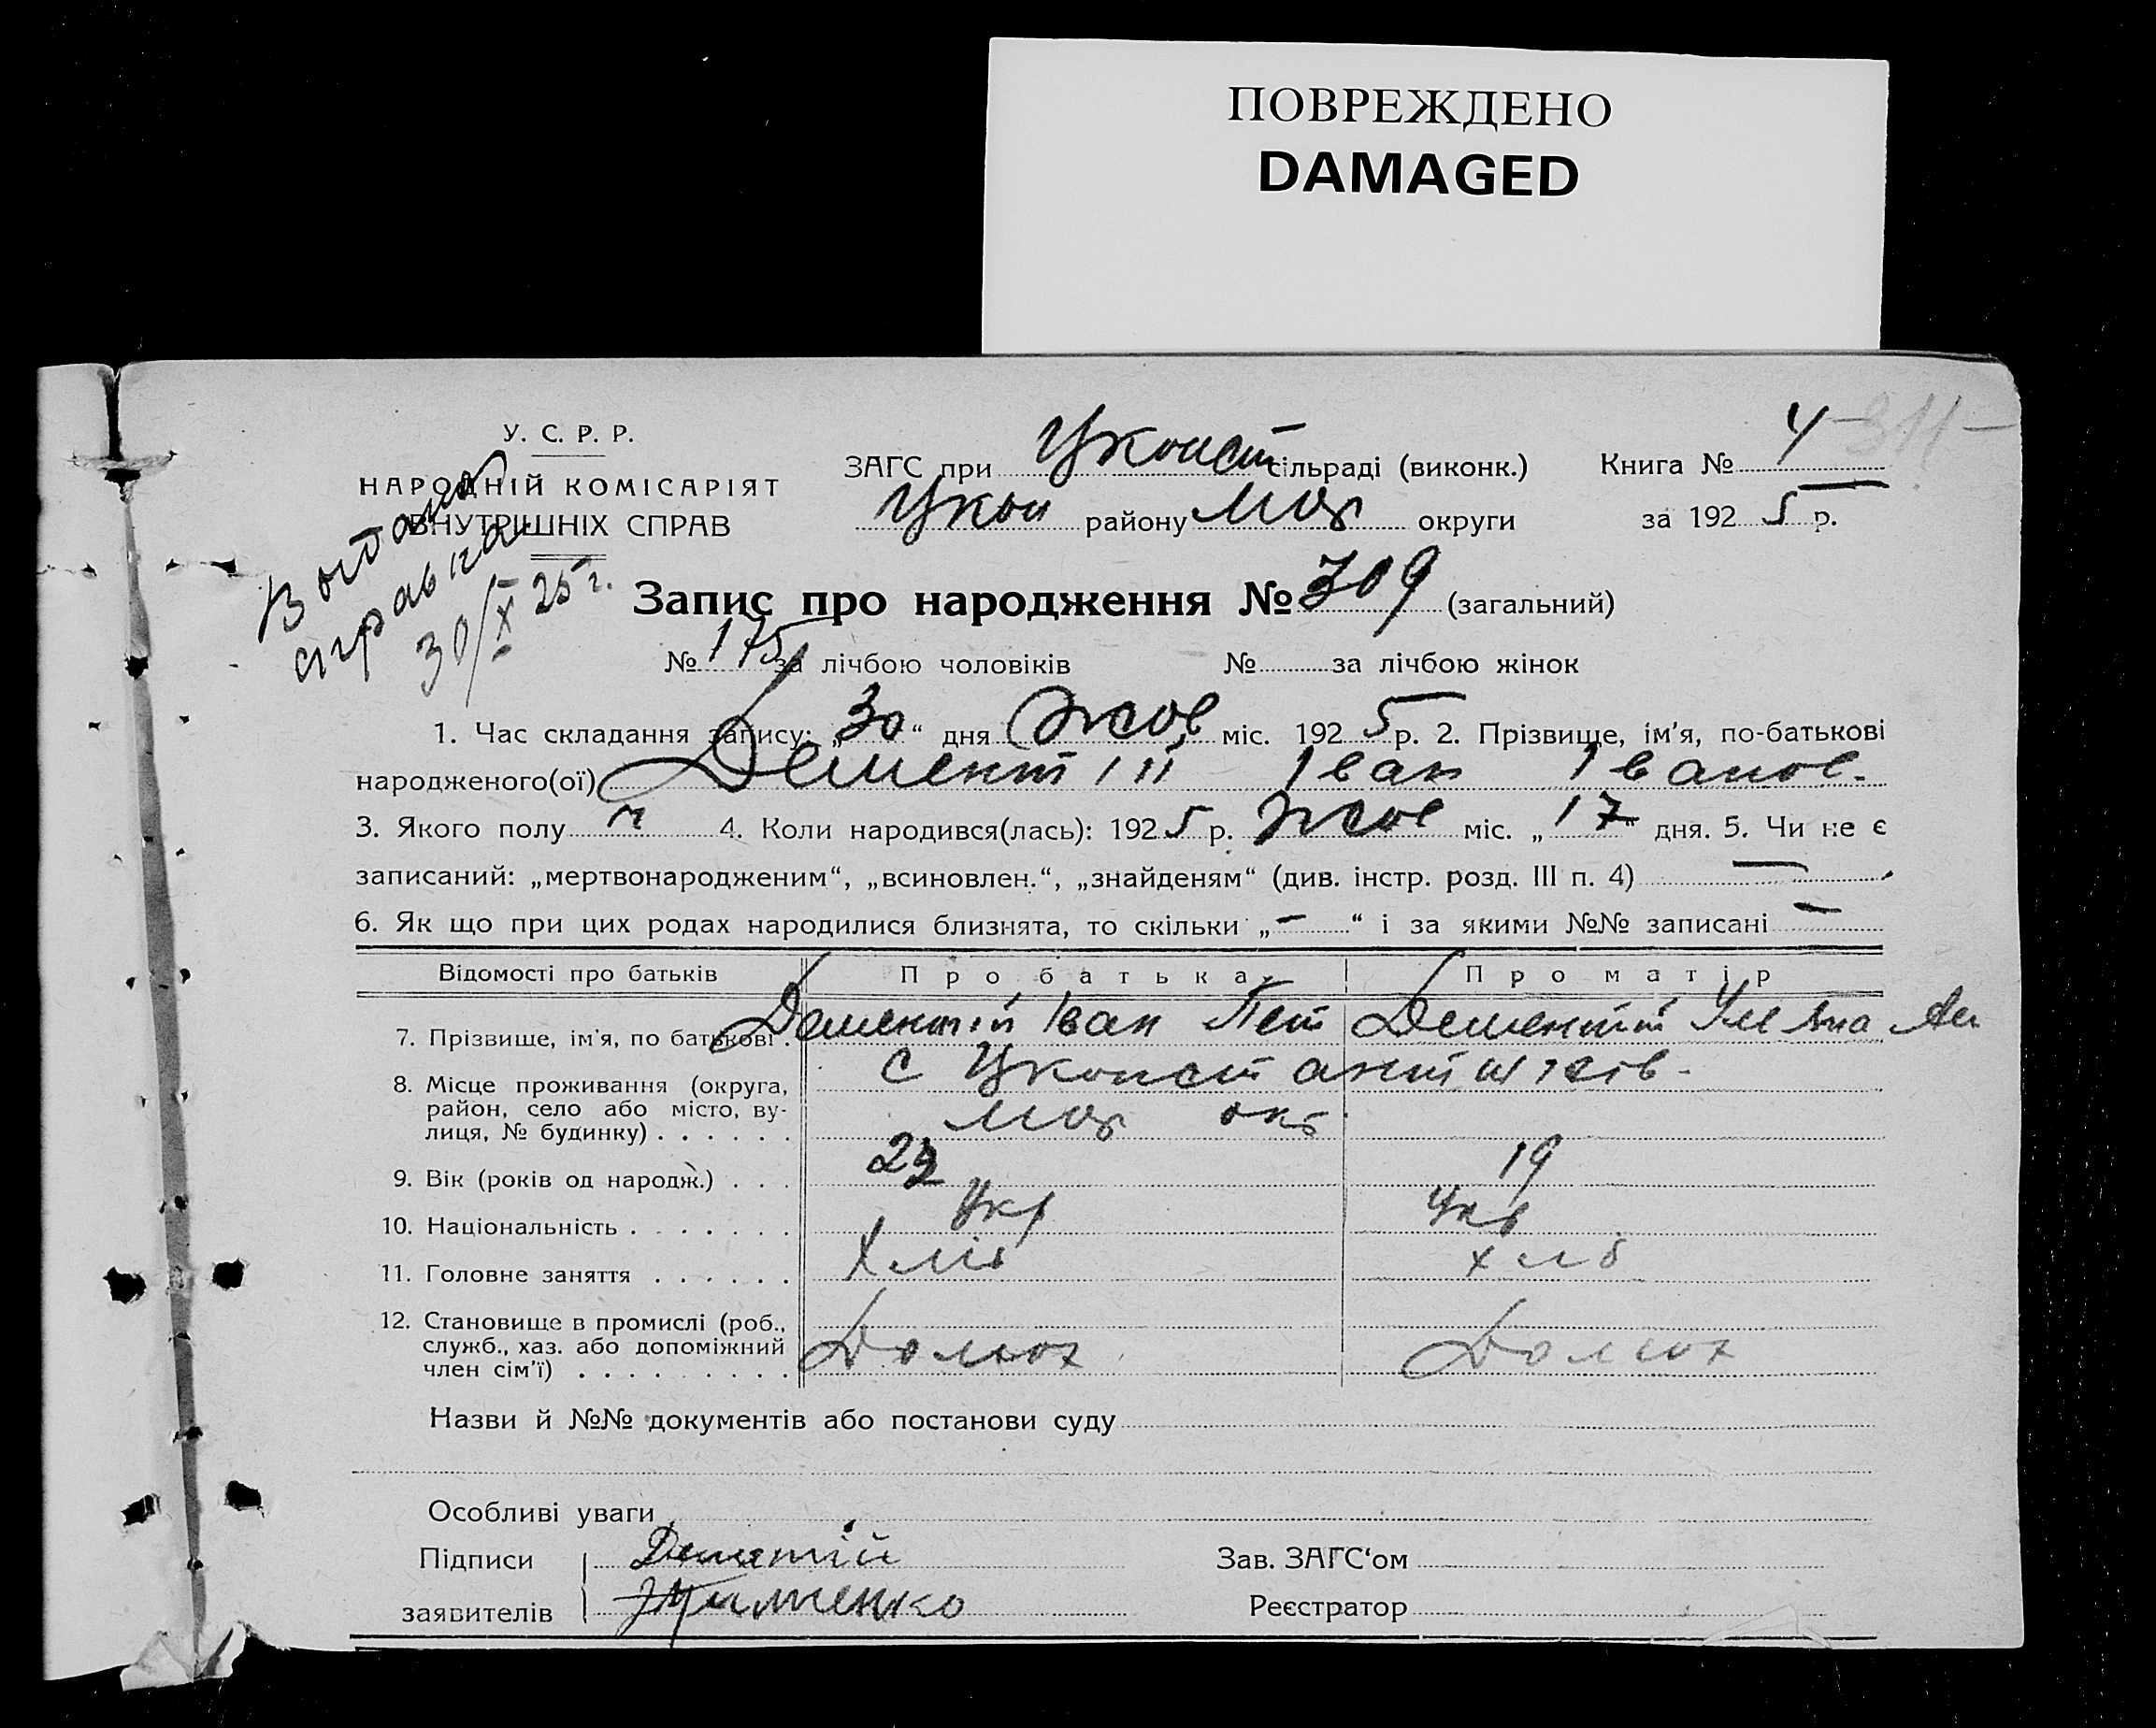 ПОВРЕЖДЕНО
DAMAGED
У. С. Р. Р.
НАРОДНІЙ КОМІСАРІЯТ
ВНУТРІШНІХ СПРАВ
Выдана
справка
30/X 25 г.
ЗАГС при Уконст сільраді (виконк.)
Укон району Мар округи
Книга № 4 311
за 1925 р.
Запис про народження № 309 (загальний)
№ 175 за лічбою чоловіків № за лічбою жінок
1. Час складання запису: „30“ дня Жов міс. 1925 р. 2. Прізвище, ім'я, по-батькові
народженого(ої) Дементій Іван Іванов.
3. Якого полу ч 4. Коли народився(лась): 1925 р. Жов міс. „17“ дня. 5. Чи не є
записаний: „мертвонародженим“, „всиновлен.“, „знайденям“ (див. інстр. розд. III п. 4) —
6. Як що при цих родах народилися близнята, то скільки „—“ і за якими №№ записані —
Відомості про батьків Про батька Про матір
7. Прізвище, ім'я, по батькові . Дементій Іван Пет Дементій Уляна Ан
8. Місце проживання (округа,
район, село або місто, ву-
лиця, № будинку) . . . . . .
с Уконстантинів.
Мар окр
9. Вік (років од народж.) . . . 22 19
10. Національність . . . . . . . Укр Укр
11. Головне заняття . . . . . . Хліб хлб
12. Становище в промислі (роб.,
служб., хаз. або допоміжний
член сім'ї) . . . . . . . . .
Домох Домох
Назви й №№ документів або постанови суду
Особливі уваги
Підписи Дементій Зав. ЗАГС‘ом
заявителів Реєстратор